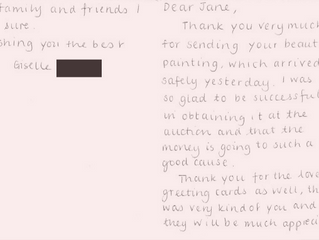 Dear Jane,
Thank you very much
for sending your beaut
painting, which arrived
safely yesterday. I was
so glad to be successful
in obtaining it at the
auction and that the
money is going to such a
good cause.
Thank you for the love
greeting cards as well, th
was very kind of you and
they will be much apprec
family and friends I
sure.
shing you the best
Giselle